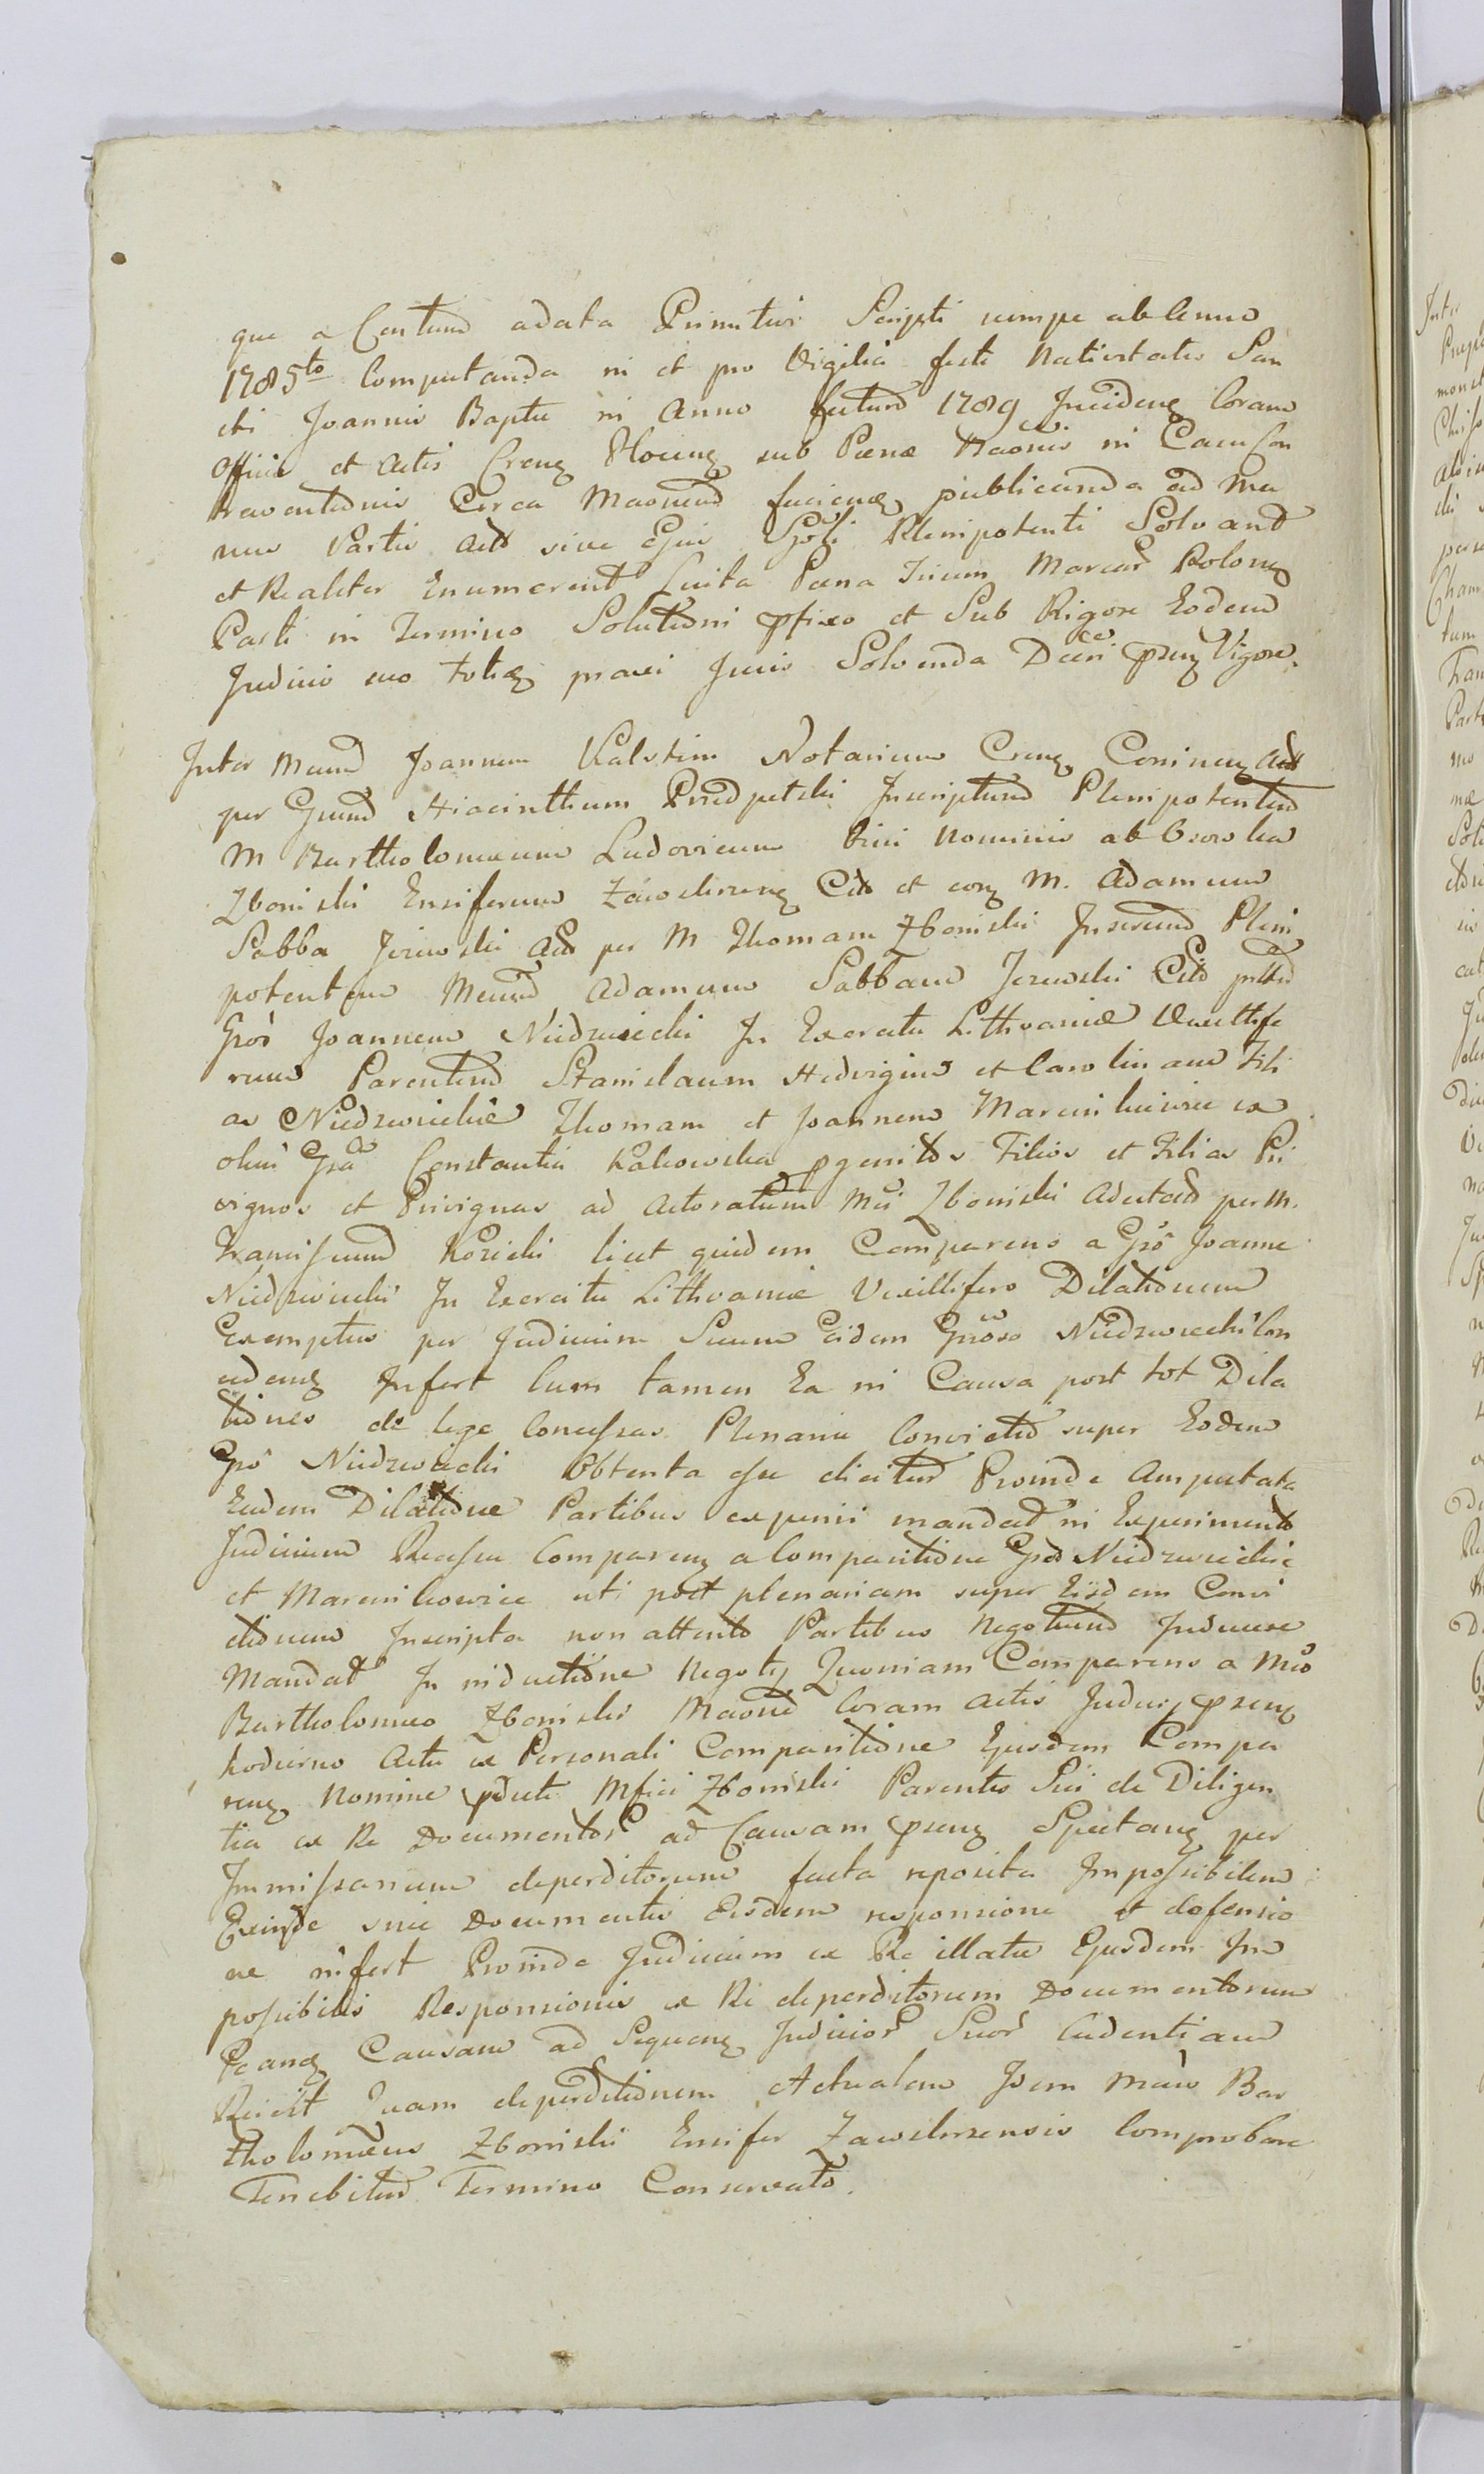 que a Centum a data Primitivi Scripti nempe ab Anno
1785to Computanda in et pro Vigilia festi Nativitatis San
cti Joannis Bapte in Anno futuro 1789 Inciden Coram
Officio et Actis Cren Plocen sub Pœna Raonis in Casu Con
traventionis Circa Maonem facien publicanda ad ma
nus Partis Act sive Ejus Spoli Plenipotenti Solvant
et Realiter Enumerent Luita Pœna Trium Marcar Polon
Parti in Termino Solutioni pfixo et Sub Rigore Eodem
Judicio suo toties praxi Juris Solvenda Decri pnsen Vigore.
Inter Mcum Joannem Kalstin Notarium Cren Coninen Act
per Grum Hiacinthum Inscriptum Plenipotentem
M Bartholomæum Ludovicum bini Nominis ab Osowka
Zboinski Ensiferum Zawskrzen Cit et eum M. Adamum
Sabba Jeziewski Act per M Thomam Zboinski Inserum Pleni
potentem Mcum Adamum Sabbam Jezewski Cit
Gros Joannem Niedzwiecki In Exercitu Lithvaniæ Vexillife
rum Parentem Stanislaum Hedvigim et Carolinam Fili
as Niedzwieckie Thomam et Joannem Marcinkiewicze ex
olim Gsa Constantia Kakowska pgenitos Filios et Filias Pri
vignos et Privignas ad Actoratum Mci Zboinski Adcitat per M.
Franciscum Kozicki licet quidem Comparens a Gro Joanne
Niedzwiecki In Exercitu Lithvaniæ Vexillifero Dilationem
Exemptus per Judicium Suum Eidem Groso Niedzwiecki Con
ceden Infert Cum tamen Ea in Causa post tot Dila
tiones de lege Concessas Plenaria Convictio super Eodem
Gro Niedzwiecki Obtenta esse dicitur Proinde Amputata
Eadem Dilatione Partibus experiri mandat in Experimento
Judicium Reassu Comparen a Comparitione Gros Niedzwieckie
et Marcinkowicze uti post plenariam super Iisdem Convi
ctionem Inscripta non attento Partibus Negotium Inducere
Mandat In inductione Negoty Quoniam Comparens a Mco
Bartholomeo Zboinski Maone Coram Actis Judicy pnsen
hodierno Actu ex Personali Comparitione Ejusdem Compa
ren Nomine pducti Mfici Zboinski Parentis Sui de Diligen
tia ex Re Documentor ad Causam pnsen Spectan per
Immissarium deperditorum facta reposita Impossibilem
Exinde sine Documentis Eisdem responsione et defensio
ne infert Proinde Judicium ex Re illatæ Ejusdem Im
possibilis Responsionis ex Re deperditorum Documentorum
Causam ad Sequen Judicior Suor Cadentiam
Reicit Quam deperditionem Actualem Idem Mcus Bar
tholomæus Zboinski Ensifer Zawskrzensis Comprobare
Tenebitur Termino Conservato.